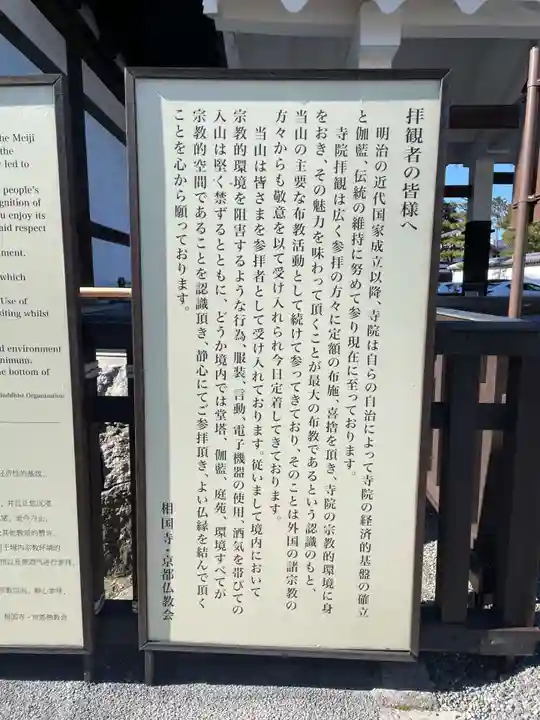 拝観者の皆様へ
明治の近代国家成立以降、寺院は自らの自治によって寺院の経済的基盤の確立
と伽藍、伝統の維持に努めて参り現在に至っております。
寺院拝観は広く参拝の方々に定額の布施、喜捨を頂き、寺院の宗教的環境に身
をおき、その魅力を味わって頂くことが最大の布教であるという認識のもと、
当山の主要な布教活動として続けて参ってきており、そのことは外国の諸宗教の
方々からも敬意を以て受け入れられ今日定着してきております。
当山は皆さまを参拝者として受け入れております。従いまして境内において
宗教的環境を阻害するような行為、服装、言動、電子機器の使用、酒気を帯びての
入山は堅く禁ずるとともに、どうか境内では堂塔、伽藍、庭苑、環境すべてが
宗教的空間であることを認識頂き、静心にてご参拝頂き、よい仏縁を結んで頂く
ことを心から願っております。
相国寺・京都仏教会
he Meiji
the
led to
people's
gnition of
u enjoy its
aid respect
nment.
which
Use of
siting whilst
d environment
nimum.
he bottom of
Buddhist Organization
相国寺・京都佛教会